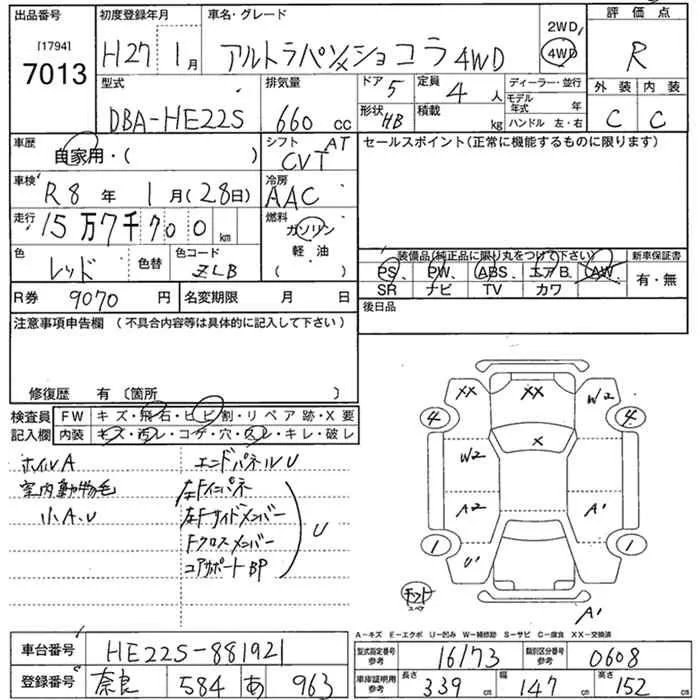 出品番号 初度登録年月 車名・グレード 2WD, 評価点
[1794] 7013 H27 1月 アルトラパンショコラ 4WD 4WD R
型式 排気量 ドア 5 定員 4人 ディーラー・並行 外装 内装
DBA-HE22S 660 cc 形状 HB 積載 kg モデル年式 年 C C
ハンドル 左・右
車歴 自家用・( ) シフト AT CVT セールスポイント(正常に機能するものに限ります)
車検 R8年 1月(28日) 冷房 AAC
走行 15万7千700 km 燃料 ガソリン
軽油
色 レッド 色替 色コード ZLB 装備品(純正品に限り丸をつけて下さい) 新車保証書
PS、PW、ABS、エアB、AW、 有・無
R券 9070円 名変期限 月 日 SR ナビ TV カワ
後日品
注意事項申告欄 (不具合内容等は具体的に記入して下さい)
修復歴 有〔箇所 〕
検査員 FW キズ・飛石・ヒビ割・リペア跡・X要
記入欄 内装 キズ・汚レ・コゲ・穴・スレ・キレ・破レ
ホイルA エンドパネルU
室内動物毛 左Fインパネ
小A.U 左Fサイドメンバー U
Fクロスメンバー
コアサポートBP
XX XX W2
4 4
X
W2
A2 A'
1 U' 1
A'
A-キズ E-エクボ U-凹み W-補修跡 S-サビ C-腐食 XX-交換済
車台番号 HE22S-881921 型式指定番号 参考 16173 類別区分番号 参考 0608
登録番号 奈良 584 あ 963 車庫証明用 参考 長さ 339 cm 幅 147 cm 高さ 152 cm